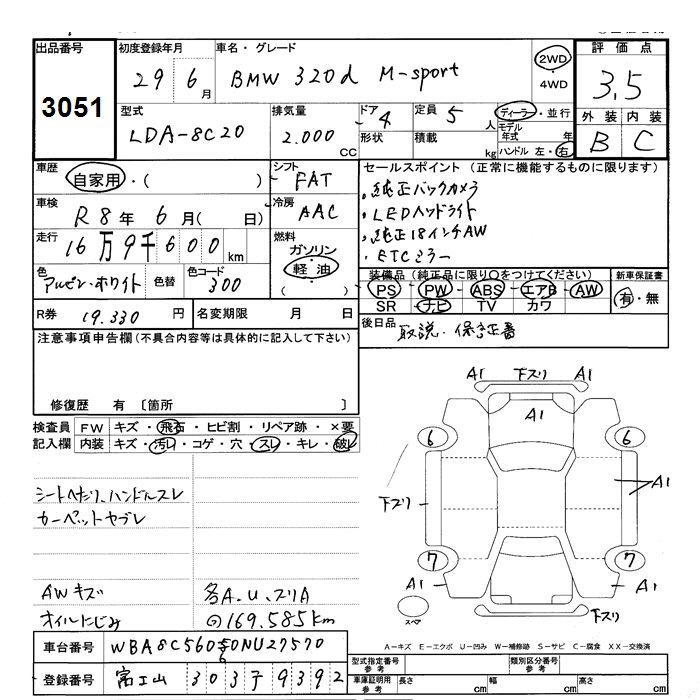 出品番号 初度登録年月 車名・グレード 評価点
3051 29 6月 BMW 320d M-sport 2WD・4WD 3.5
型式 排気量 ドア 定員 ディーラー・並行 外装 内装
LDA-8C20 2.000 CC 4 5人 モデル年式 年 B C
形状 積載 kg ハンドル 左・右
車歴 シフト セールスポイント (正常に機能するものに限ります)
自家用・( ) FAT ・純正バックカメラ
車検 冷房 ・LEDヘッドライト
R8年 6月( 日) AAC ・純正18インチAW
走行 燃料 ・ETCミラー
16万9千600km ガソリン
軽油
( )
色 色替 色コード 装備品 (純正品に限り○をつけてください) 新車保証書
アルピン・ホワイト 300 PS・PW・ABS・エアB・AW 有・無
SR ナビ TV カワ
R券 19.330円 名変期限 月 日 後日品 取説・保証書
注意事項申告欄 (不具合内容等は具体的に記入して下さい)
修復歴 有 〔箇所 〕
検査員 FW キズ・飛石・ヒビ割・リペア跡・×要
記入欄 内装 キズ・汚れ・コゲ・穴・スレ・キレ・破レ
シートヘたり、ハンドルスレ
カーペットヤブレ
AWキズ 各A.U.スリA
オイルにじみ ⊙169.585km
車台番号 WBA8C56050NU27570
6
登録番号 富士山 303 79392
A1 下スリ A1
A1
6 6
下スリ A1
7 7
A1 A1
スペア 下スリ
A-キズ E-エクボ U-凹み W-補修跡 S-サビ C-腐食 XX-交換済
型式指定番号 参考 類別区分番号 参考
車庫証明用 参考 長さ cm 幅 cm 高さ cm